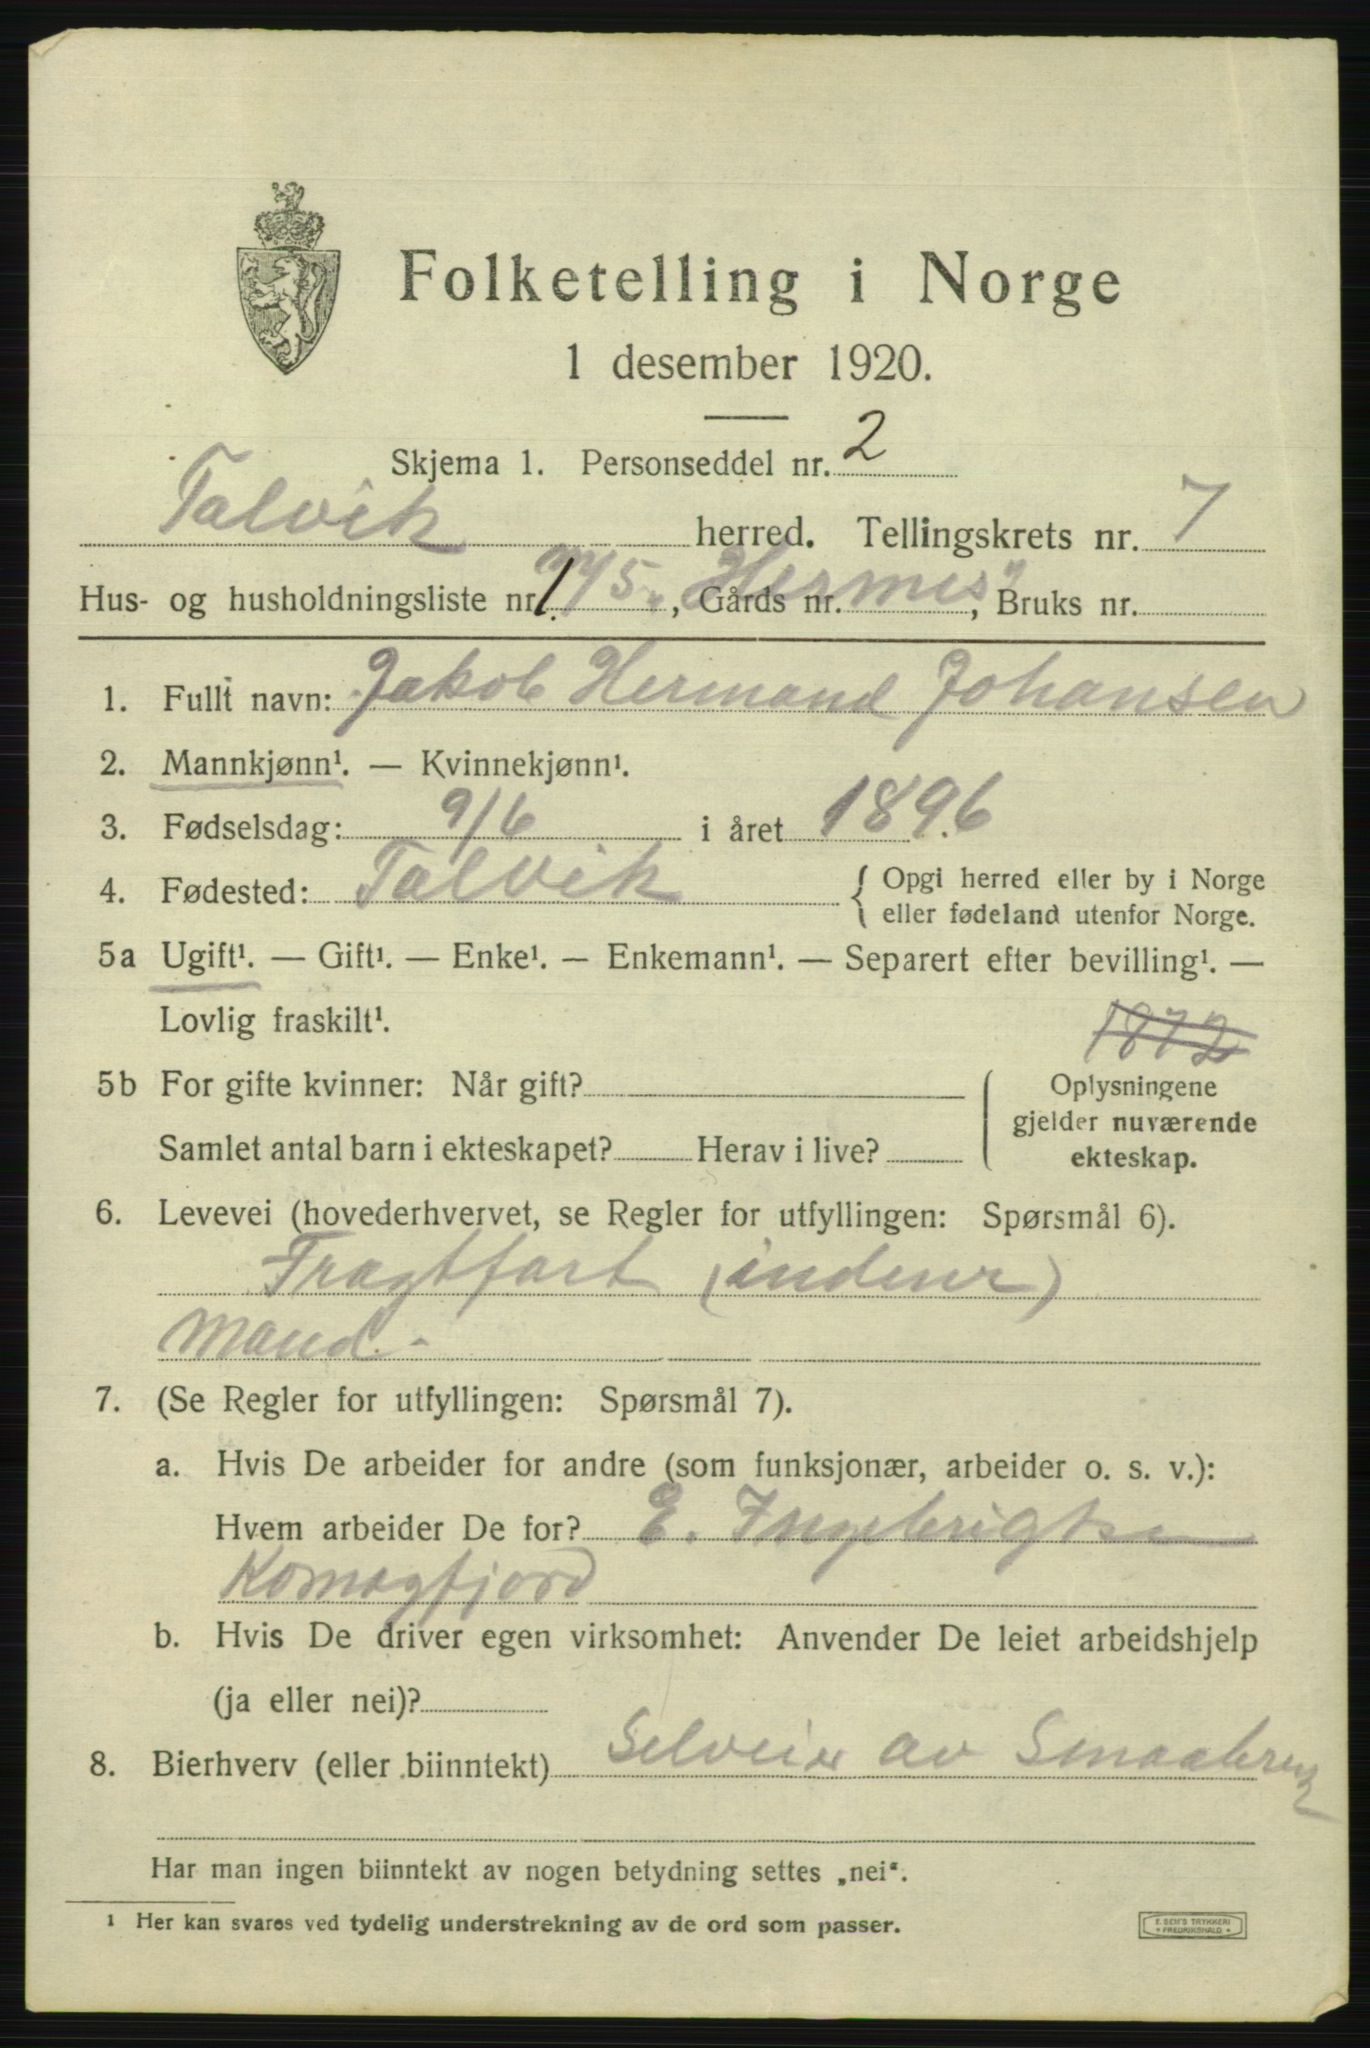 Folketelling i Norge
1 desember 1920.
Skjema 1. Personseddel nr. 2
Talvik herred. Tellingskrets nr. 7
Hus- og husholdningsliste nr. 1. M/S. „Hermes", Gårds nr. , Bruks nr.
1. Fullt navn: Jakob Hermand Johansen
2. Mannkjønn¹. — Kvinnekjønn¹.
3. Fødselsdag: 9/6 i året 1896
4. Fødested: Talvik { Opgi herred eller by i Norge
eller fødeland utenfor Norge.
5a Ugift¹. — Gift¹. — Enke¹. — Enkemann¹. — Separert efter bevilling¹. —
Lovlig fraskilt¹.
1872
5b For gifte kvinner: Når gift? Oplysningene
gjelder nuværende
Samlet antal barn i ekteskapet? Herav i live? ekteskap.
6. Levevei (hovederhvervet, se Regler for utfyllingen: Spørsmål 6).
Fragtfart (indenr)
Mand.-
7. (Se Regler for utfyllingen: Spørsmål 7).
a. Hvis De arbeider for andre (som funksjonær, arbeider o. s. v.):
Hvem arbeider De for? E. Ingebrigtsen
Komagfjord
b. Hvis De driver egen virksomhet: Anvender De leiet arbeidshjelp
(ja eller nei)?
8. Bierhverv (eller biinntekt) Selveier av Smaabruk
Har man ingen biinntekt av nogen betydning settes „nei".
¹ Her kan svares ved tydelig understrekning av de ord som passer.
E. SEM'S TRYKKERI
FREDRIKSHALD